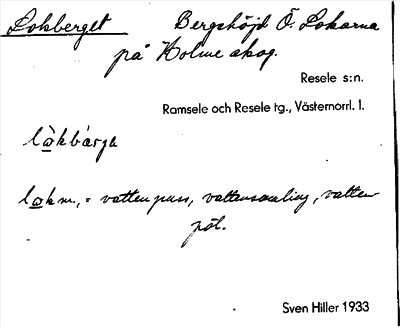 Lokberget Bergshöjd Ö. Lokarna
på Holme skog.
Resele s:n.
Ramsele och Resele tg., Västernorrl. l.
lo̲kbárga
lo̲k m., = vattenpuss, vattensamling, vatten
pöl.
Sven Hiller 1933